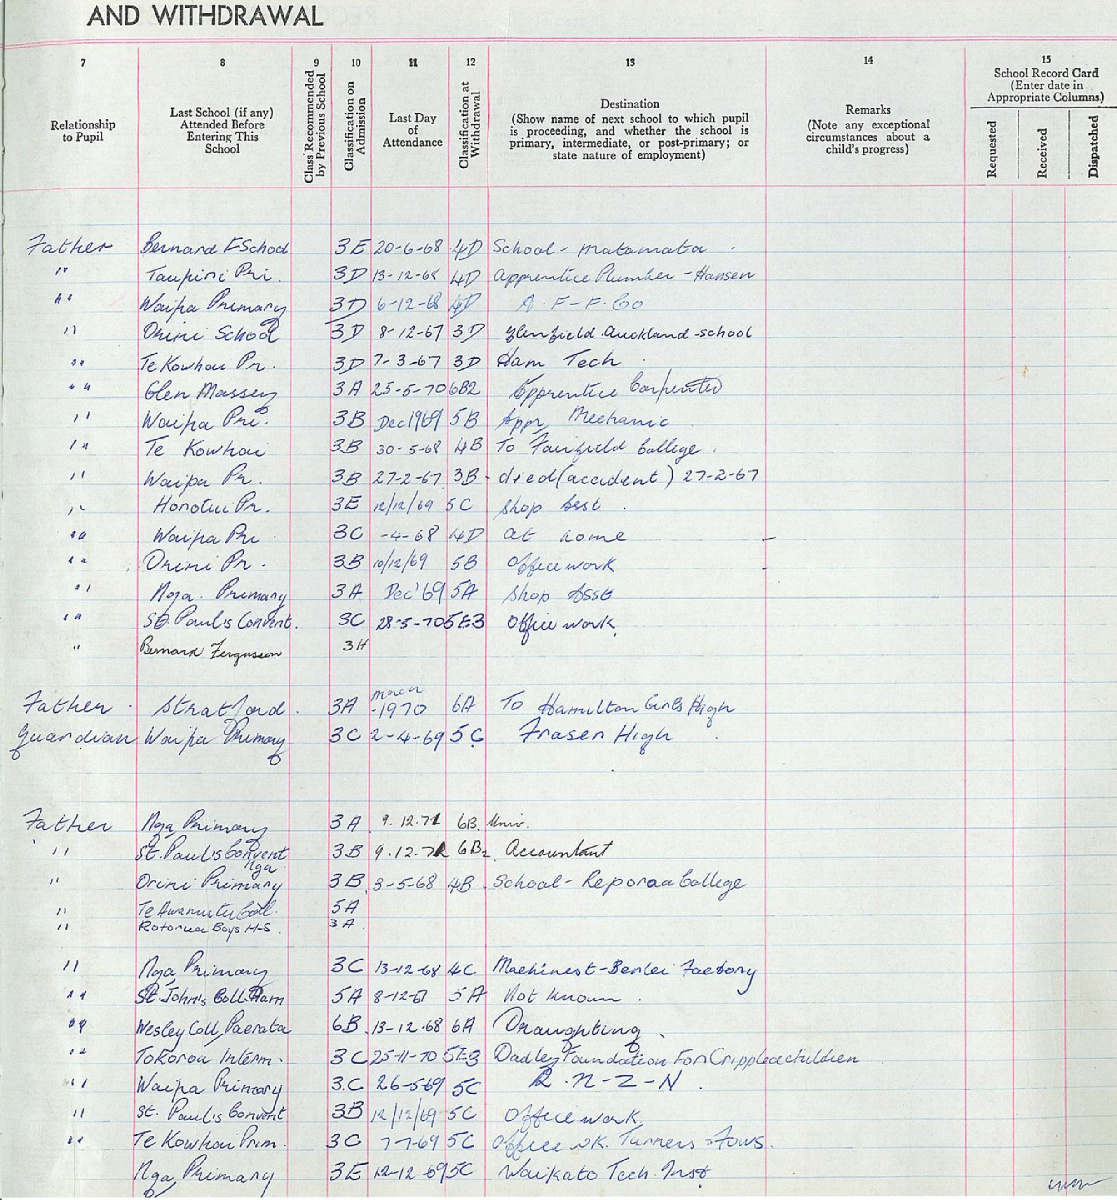 AND WITHDRAWAL
7 8 9 10 11 12 13 14 15
Relationship to Pupil
Last School (if any) Attended Before Entering This School
Class Recommended by Previous School
Classification on Admission
Last Day of Attendance
Classification at Withdrawal
Destination
(Show name of next school to which pupil is proceeding, and whether the school is primary, intermediate, or post-primary; or state nature of employment)
Remarks
(Note any exceptional circumstances about a child's progress)
School Record Card (Enter date in Appropriate Columns)
Requested Received Dispatched
Father Bernard F School 3E 20-6-68 4D School - Matamata
" Taupiri Pri. 3D 13-12-68 4D Apprentice Plumber - Hansen
" Waipa Primary 3D 6-12-68 4D A. F - F. Co
" Orini School 3D 8-12-67 3D Glenfield Auckland-school
" Te Kowhai Pr. 3D 7-3-67 3D Ham Tech
" Glen Massey 3A 25-5-70 6B2 Apprentice Carpenter
" Waipa Pri. 3B Dec 1969 5B Appr. Mechanic
" Te Kowhai 3B 30-5-68 4B To Fairfield College.
" Waipa Pr. 3B 27-2-67 3B - died (accident) 27-2-67
" Honotui Pr. 3E 12/12/69 5C Shop Asst.
" Waipa Pri 3C -4-68 4D at home
" Orini Pr. 3B 10/12/69 5B Office work
" Nga. Primary 3A Dec '69 5A Shop Asst
" St. Paul's Convent. 3C 28-5-70 5E3 Office work.
" Bernard Fergusson 3H
Father Stratford 3A March -1970 6A To Hamilton Girls High
Guardian Waipa Primary 3C 2-4-69 5C Fraser High
Father Nga Primary 3A 9.12.71 6B. Univ.
" St. Paul's Convent Nga 3B 9.12.71 6B2 Accountant
" Orini Primary 3B 3-5-68 4B School - Reporoa College
" Te Awamutu Coll. 5A
" Rotorua Boys H-S. 3A
" Nga Primary 3C 13-12-68 4C Machinest - Berlei Factory
" St John's Coll. Ham 5A 8-12-67 5A Not known.
" Wesley Coll, Paerata 6B 13-12-68 6A Draughting.
" Tokoroa Interm. 3C 25-11-70 5E3 Dadley Foundation For Crippled children
" Waipa Primary 3C 26-5-69 5C R.N-Z-N.
" St. Paul's Convent 3B 12/12/69 5C Office work.
" Te Kowhai Prim. 3C 7-7-69 5C Office wk. Turners
Nga Primary 3E 12-12-69 5C Waikato Tech. Inst